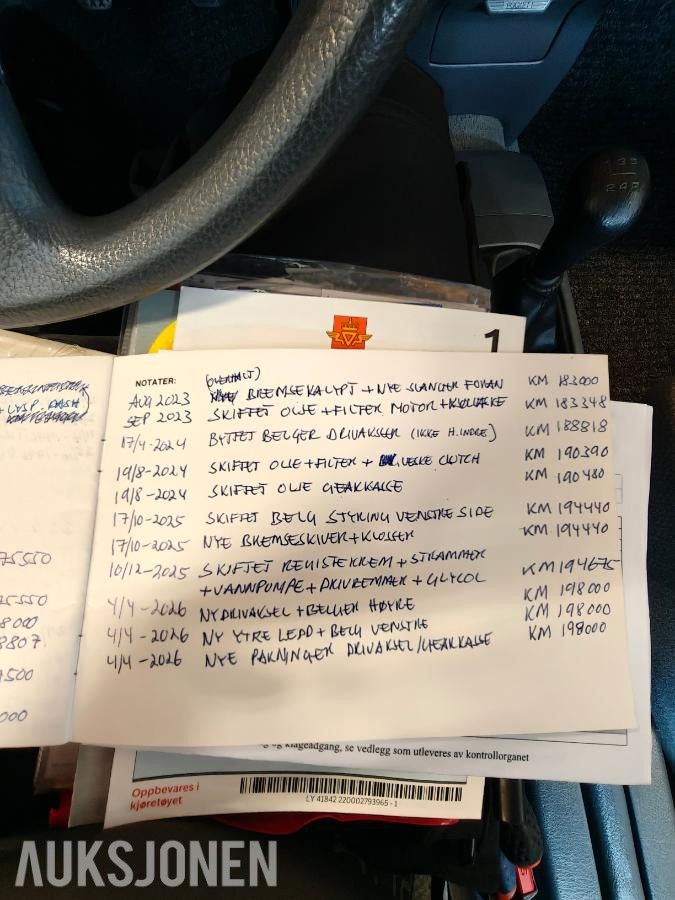 POCKET
1 3 5
2 4 R
1
NOTATER:
(OVERHALT)
AUG 2023 BREMSEKALYPT + NYE SLANGER FORAN KM 183000
SEP 2023 SKIFTET OLJE + FILTER MOTOR + KM 183348
17/4-2024 BYTTET BELGER DRIVAKSLER (IKKE H. INDRE) KM 188818
19/8-2024 SKIFTET OLJE + FILTER + VESKE CLUTCH KM 190390
19/8-2024 SKIFTET OLJE GEARKASSE KM 190480
17/10-2025 SKIFTET BELG STYRING VENSTRE SIDE KM 194440
17/10-2025 NYE BREMSESKIVER + KLOSSER KM 194440
10/12-2025 SKIFTET REGISTERREM + STRAMMER KM 194675
+ VANNPUMPE + DRIVREMMER + GLYCOL
4/4-2026 NY DRIVAKSEL + BELGER HØYRE KM 198000
4/4-2026 NY YTRE LEDD + BELG VENSTRE KM 198000
4/4-2026 NYE PAKNINGER DRIVAKSEL/GEARKASSE KM 198000
75550
75550
8000
8807
500
000
og klageadgang, se vedlegg som utleveres av kontrollorganet
Oppbevares i
kjøretøyet
LY 41842 220002793965 - 1
AUKSJONEN